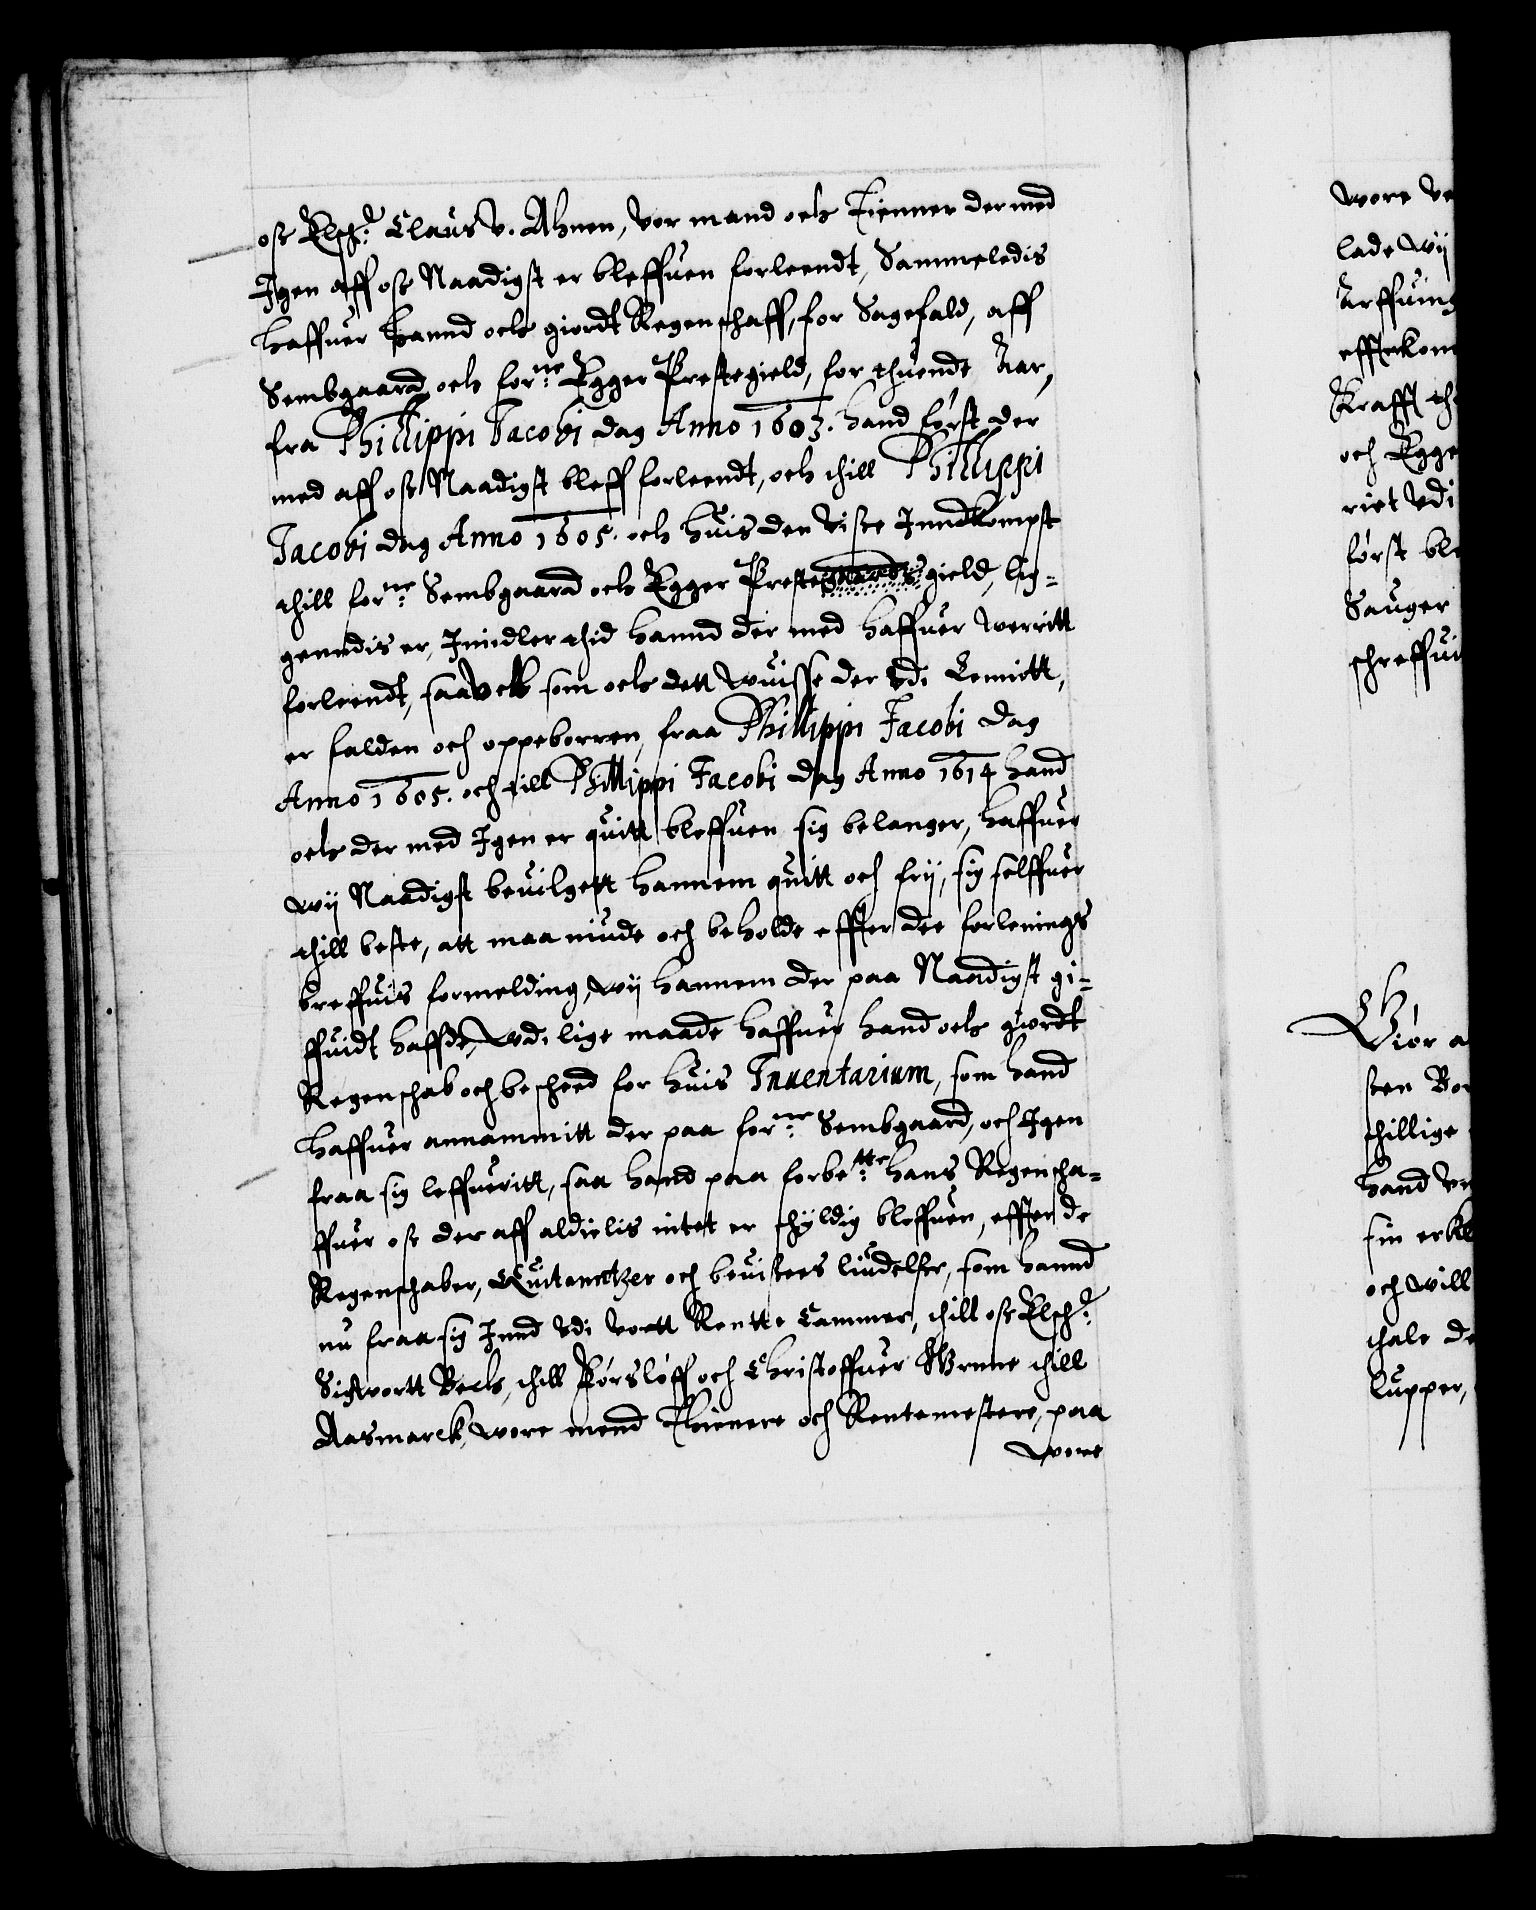 oss Elsch: Claus v. Ahnen, vor mand och Tienner der med
Igen aff oss Naadigst er bleffuen forleendt, Sammeledis
haffuer hannd och giordt Regenschaff, for Sagefald, aff
Sembgaard och forne: Egger Prestegield, for thuende Aar,
fra Phillippi Jacobi dag Anno 1603. hand først der
med aff oss Naadigst bleff forleendt, och thill Phillippi
Jacobi dag Anno 1605. och huis den Visse Inndkompst
thill forne: Sembgaard och Egger Prestegaardsgield, lig-
genndis er, Imidler thid hannd der med haffuer werritt
forleendt, saauell som och dett Wuisse der Vdi Lennitt,
er falden och oppeborren, fraa Phillippi Jacobi dag
Anno 1605. och till Phillippi Jacobi dag Anno 1614 hand
och der med Igen er quitt bleffuen sig belanger, haffuer
wij Naadigst beuilgett hannem quitt och frij, sig selffuer
thill beste, att maa niude och beholde effter dee forlenings
breffuis formelding, wij hannem der paa Naadigst gi-
ffuidt haffde, Vdi lige maade haffuer hand och giordt
Regenschab och besched for huis Inuentarium, som hand
haffuer annammitt der paa forne: Sembgaard, och Igen
fraa sig leffueritt, saa hand paa forbette: hans Regenscha-
ffuer oss der aff aldielis intet er schyldig bleffuen, effter de
Regenschaber, Quitantzer och beuisers liudelser, som hannd
nu fraa sig Innd Vdi vortt Rentte Cammer, thill oss Elsch:
Sigwortt Beck, thill Førsløff och Christoffuer Wrnne thill
Aasmarck, wore mend Thienere och Rentemestere, paa
wore
wore
lade wij
Arffuing
effterkom
Krafft
och Egge
riet Vdi
først ble
Sauger
schreffui
Giør a
sten
schillige
hand
sin erkl
och will
thale de
lupper,